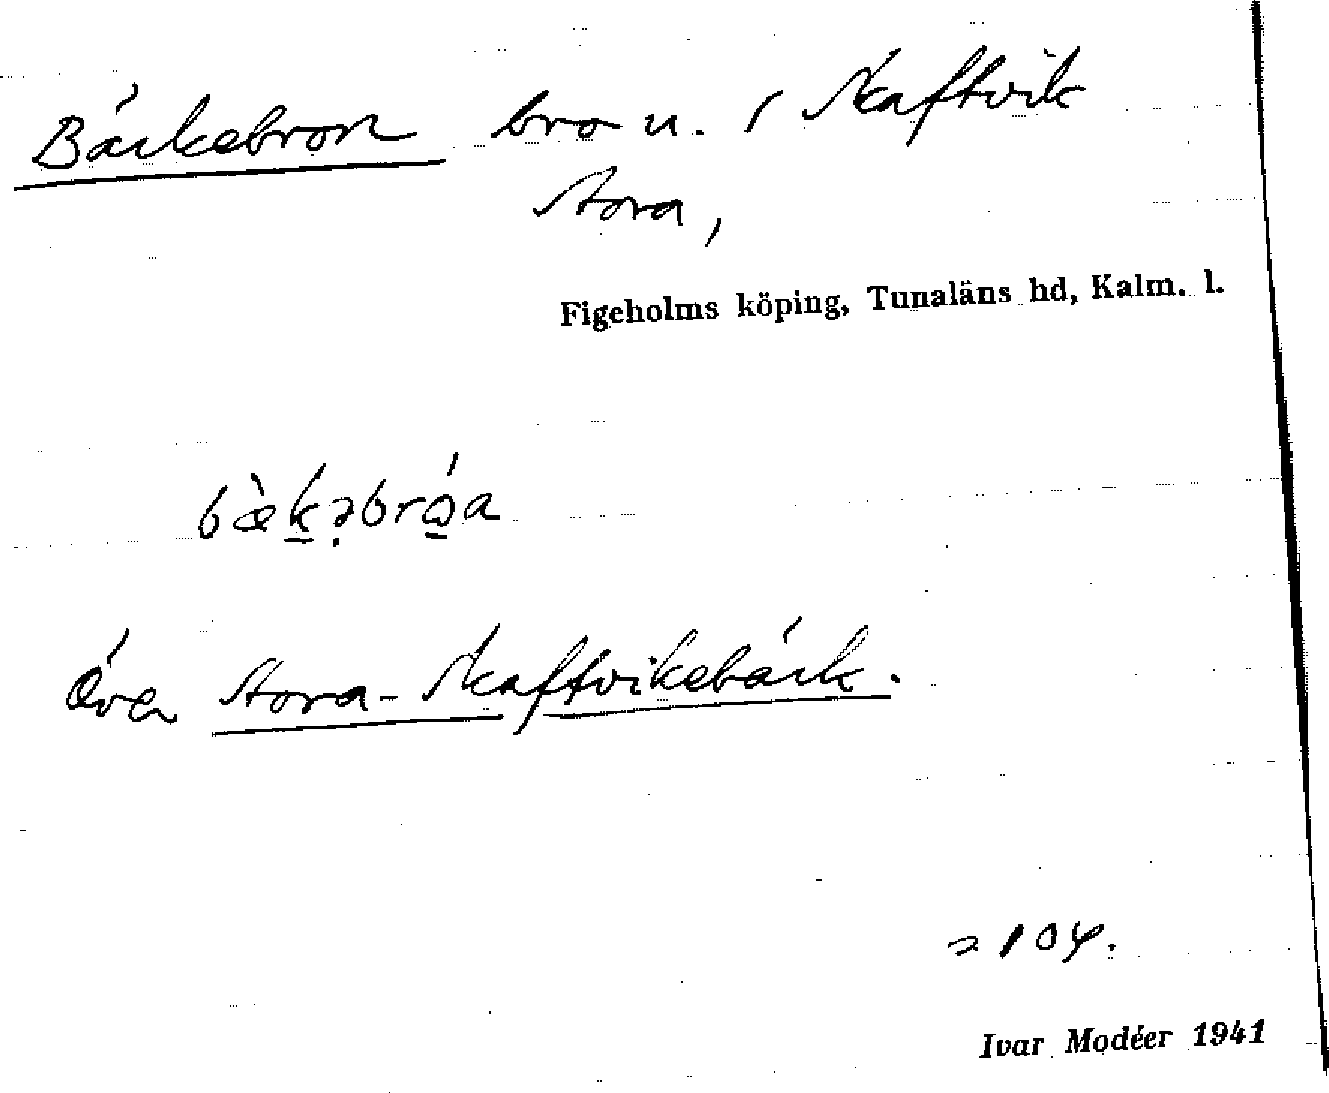 Bäckebron bro u. / Skaftvik
Stora,
Figeholms köping, Tunaläns hd, Kalm. l.
bæ̀k̠ə̣brώ̠a
över Stora-Skaftvikebäck.
= 104.
Ivar Modéer 1941